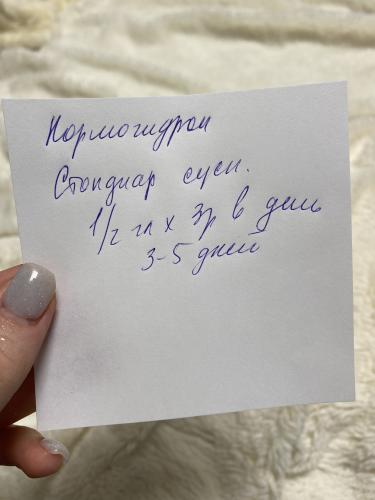 Нормогидрон
Стопдиар сусп.
1/2 чл х 3р в день
3-5 дней